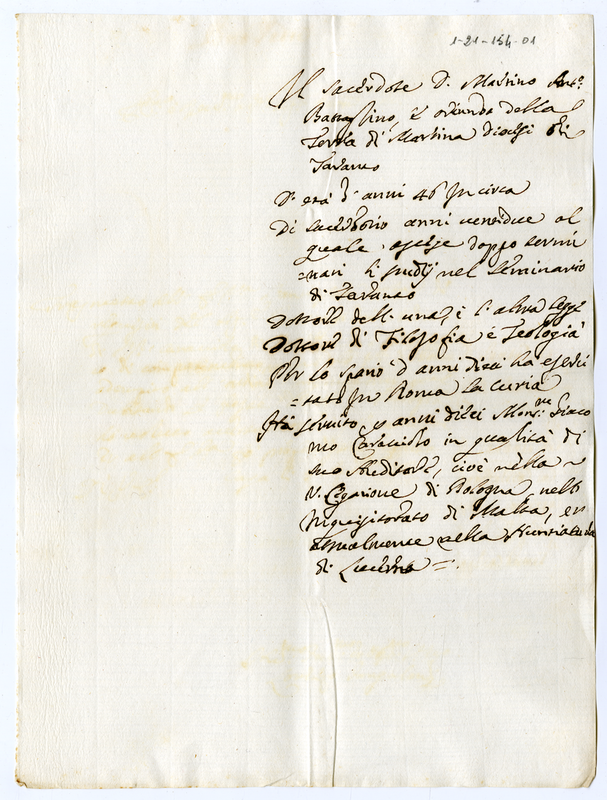 1-21-154-01
Il sacerdote D. Martino Ant.º
Battaglino, è oriundo della
Terra di Martina Diocesi di
Taranto
D' età d' anni 46 in circa
Di sacerdozio anni ventidue al
quale ascese doppo termi
=nati li studij nel seminario
di Taranto
Dottore dell' una, e l' altra legge
Dottore di Filosofia e Teologia
Per lo spazio d' anni dieci ha eserci
=tato in Roma la curia
Hà servito p anni dieci Mons.re Giaco
mo Caracciolo in qualità di
suo Auditore, cioè nella
V. Legazione di Bologna, nell'
Inquisitorato di Malta, et
attualmente nella Nunziatura
di Lucerna =.